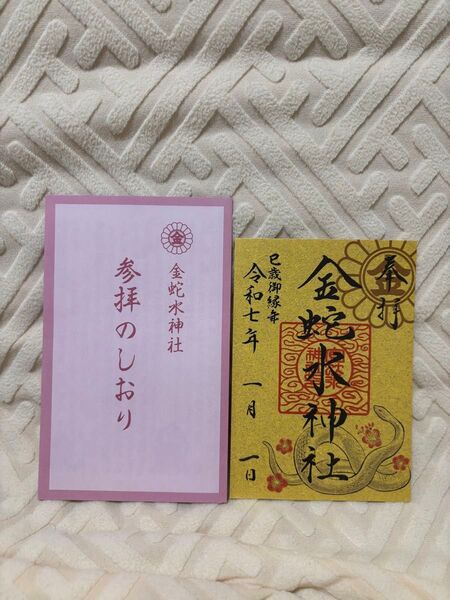 金
金蛇水神社
参拝のしおり
金
奉拝
金蛇水神社
巳歳御縁年
令和七年 一月 一日